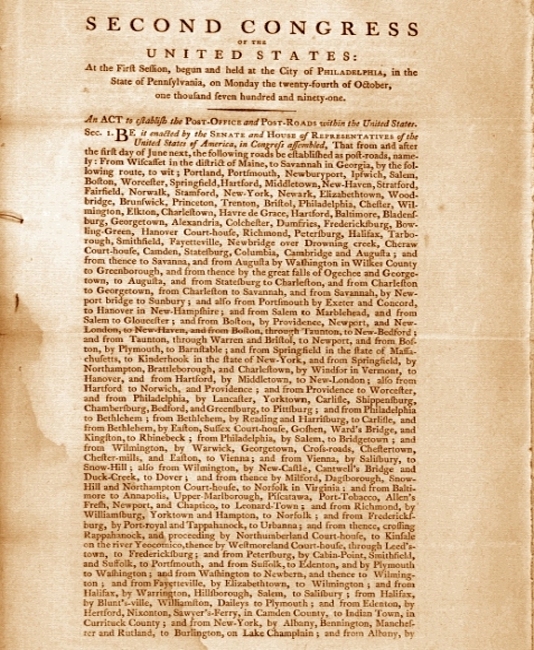 SECOND CONGRESS
OF THE
UNITED STATES:
At the First Seſſion, begun and held at the City of PHILADELPHIA, in the
State of Pennſylvania, on Monday the twenty-fourth of October,
one thouſand ſeven hundred and ninety-one.
An ACT to eſtabliſh the POST-OFFICE and POST-ROADS within the United States.
Sec. 1. BE it enacted by the SENATE and HOUSE of REPRESENTATIVES of the
United States of America, in Congreſs aſſembled, That from and after
the firſt day of June next, the following roads be eſtabliſhed as poſt-roads, name-
ly: From Wiſcaſſet in the diſtrict of Maine, to Savannah in Georgia, by the fol-
lowing route, to wit; Portland, Portſmouth, Newburyport, Ipſwich, Salem,
Boſton, Worceſter, Springfield, Hartford, Middletown, New-Haven, Stratford,
Fairfield, Norwalk, Stamford, New-York, Newark, Elizabethtown, Wood-
bridge, Brunſwick, Princeton, Trenton, Briſtol, Philadelphia, Cheſter, Wil-
mington, Elkton, Charleſtown, Havre de Grace, Hartford, Baltimore, Bladenſ-
burg, Georgetown, Alexandria, Colcheſter, Dumfries, Frederickſburg, Bow-
ling-Green, Hanover Court-houſe, Richmond, Peterſburg, Halifax, Tarbo-
rough, Smithfield, Fayetteville, Newbridge over Drowning creek, Cheraw
Court-houſe, Camden, Stateſburg, Columbia, Cambridge and Auguſta; and
from thence to Savanna, and from Auguſta by Waſhington in Wilkes County
to Greenborough, and from thence by the great falls of Ogechee and George-
town, to Auguſta, and from Stateſburg to Charleſton, and from Charleſton
to Georgetown, from Charleſton to Savannah, and from Savannah, by New-
port bridge to Sunbury; and alſo from Portſmouth by Exeter and Concord,
to Hanover in New-Hampſhire; and from Salem to Marblehead, and from
Salem to Glouceſter; and from Boſton, by Providence, Newport, and New-
London, to New-Haven, and from Boſton, through Taunton, to New-Bedford;
and from Taunton, through Warren and Briſtol, to Newport, and from Boſ-
ton, by Plymouth, to Barnſtable; and from Springfield in the ſtate of Maſſa-
chuſetts, to Kinderhook in the ſtate of New-York, and from Springfield, by
Northampton, Brattleborough, and Charleſtown, by Windſor in Vermont, to
Hanover, and from Hartford, by Middletown, to New-London; alſo from
Hartford to Norwich, and Providence; and from Providence to Worceſter,
and from Philadelphia, by Lancaſter, Yorktown, Carliſle, Shippenſburg,
Chamberſburg, Bedford, and Greenſburg, to Pittſburg; and from Philadelphia
to Bethlehem; from Bethlehem, by Reading and Harriſburg, to Carliſle, and
from Bethlehem, by Eaſton, Suſſex Court-houſe, Goſhen, Ward's Bridge, and
Kingſton, to Rhinebeck; from Philadelphia, by Salem, to Bridgetown; and
from Wilmington, by Warwick, Georgetown, Croſs-roads, Cheſtertown,
Cheſter-mills, and Eaſton, to Vienna; and from Vienna, by Saliſbury, to
Snow-Hill; alſo from Wilmington, by New-Caſtle, Cantwell's Bridge and
Duck-Creek, to Dover; and from thence by Milford, Dagſborough, Snow-
Hill and Northampton Court-houſe, to Norfolk in Virginia; and from Balti-
more to Annapolis, Upper-Marlborough, Piſcatawa, Port-Tobacco, Allen's
Freſh, Newport, and Chaptico, to Leonard-Town; and from Richmond, by
Williamſburg, Yorktown and Hampton, to Norfolk; and from Frederickſ-
burg, by Port-royal and Tappahanock, to Urbanna; and from thence, croſſing
Rappahanock, and proceeding by Northumberland Court-houſe, to Kinſale
on the river Yeocomico, thence by Weſtmoreland Court-houſe, through Leed's-
town, to Frederickſburg; and from Peterſburg, by Cabin-Point, Smithfield,
and Suffolk, to Portſmouth, and from Suffolk, to Edenton, and by Plymouth
to Waſhington; and from Waſhington to Newbern, and thence to Wilming-
ton; and from Fayetteville, by Elizabethtown, to Wilmington; and from
Halifax, by Warrington, Hillſborough, Salem, to Saliſbury; from Halifax,
by Blunt's-ville, Williamſton, Daileys to Plymouth; and from Edenton, by
Hertford, Nixonton, Sawyer's-Ferry, in Camden County, to Indian Town, in
Currituck County; and from New-York, by Albany, Bennington, Mancheſ-
ter and Rutland, to Burlington, on Lake Champlain; and from Albany, by